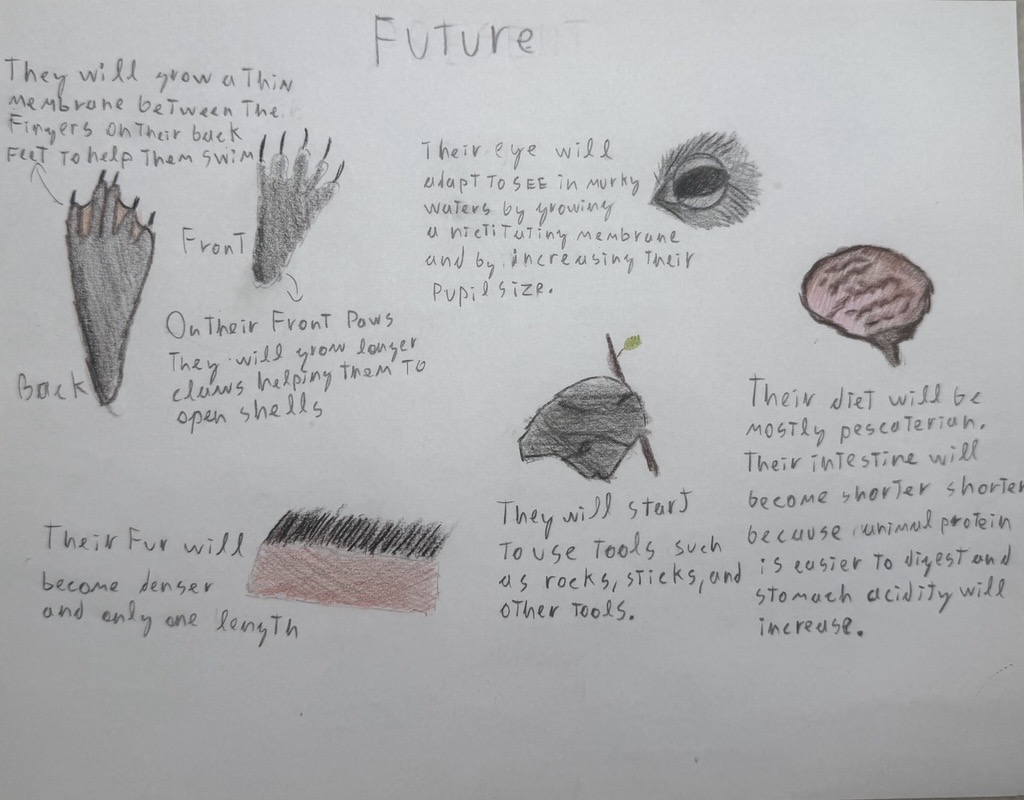 Future
They will grow a Thin
membrane between The
Fingers on Their back
FeeT To help Them swim
Front
Back
On Their Front Paws
They will grow longer
claws helping them To
open shells
Their eye will
adapt To SEE in murky
waters by growing
a nictitating membrane
and by increasing Their
Pupil size.
Their Fur will
become denser
and only one length
They will start
To use Tools such
as rocks, sticks, and
other Tools.
Their diet will be
mostly pescaterian.
Their intestine will
become shorter shorter
because animal protein
is easier to digest and
stomach acidity will
increase.